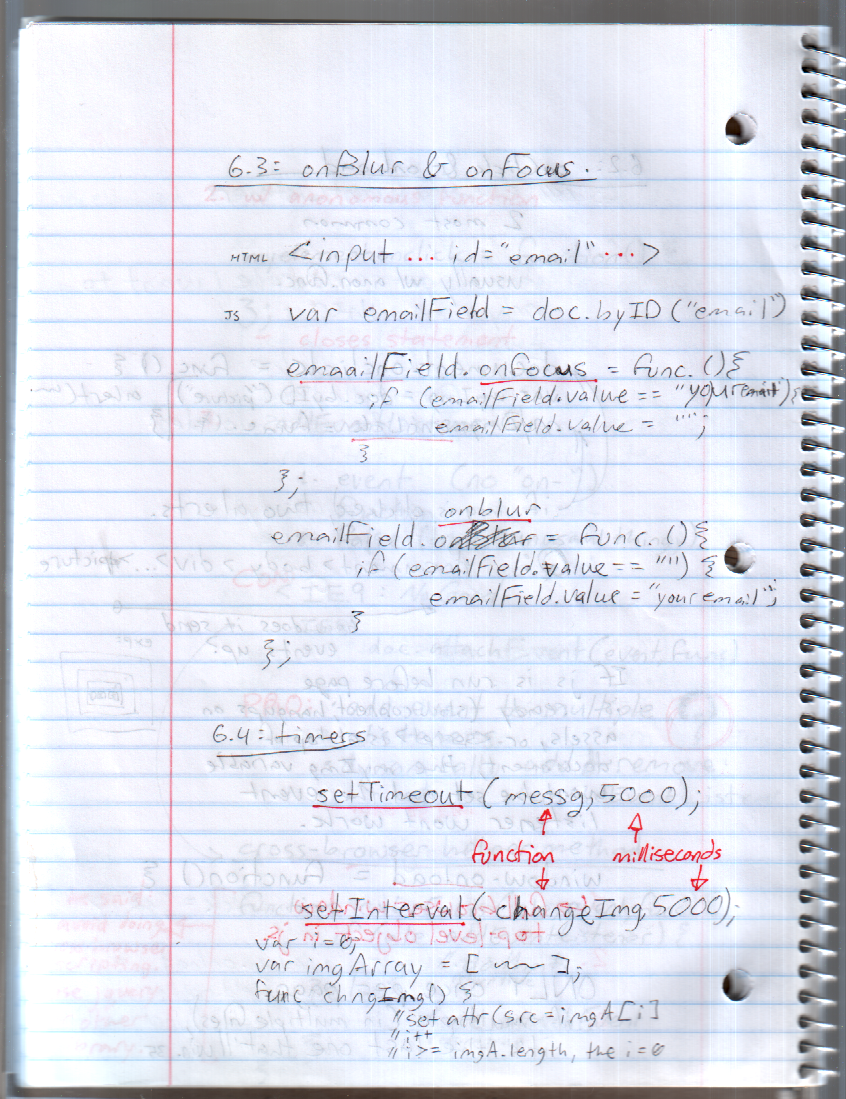 6.3: onBlur & onFocus.
HTML <input ... id="email" ...>
JS var emailField = doc.byID("email")
emaailField.onfocus = func.(){
if (emailField.value == "your email"){
emailField.value = "";
}
};
onblur
emailField. = func.(){
if (emailField.value == "") {
emailField.value = "your email";
}
};
6.4: timers
setTimeout (messg, 5000);
function milliseconds
setInterval (changeImg, 5000);
var i=0;
var imgArray = [ ];
func chngImg() {
"set attr(src=imgA[i]
"i++
"i>= imgA.length, the i=0